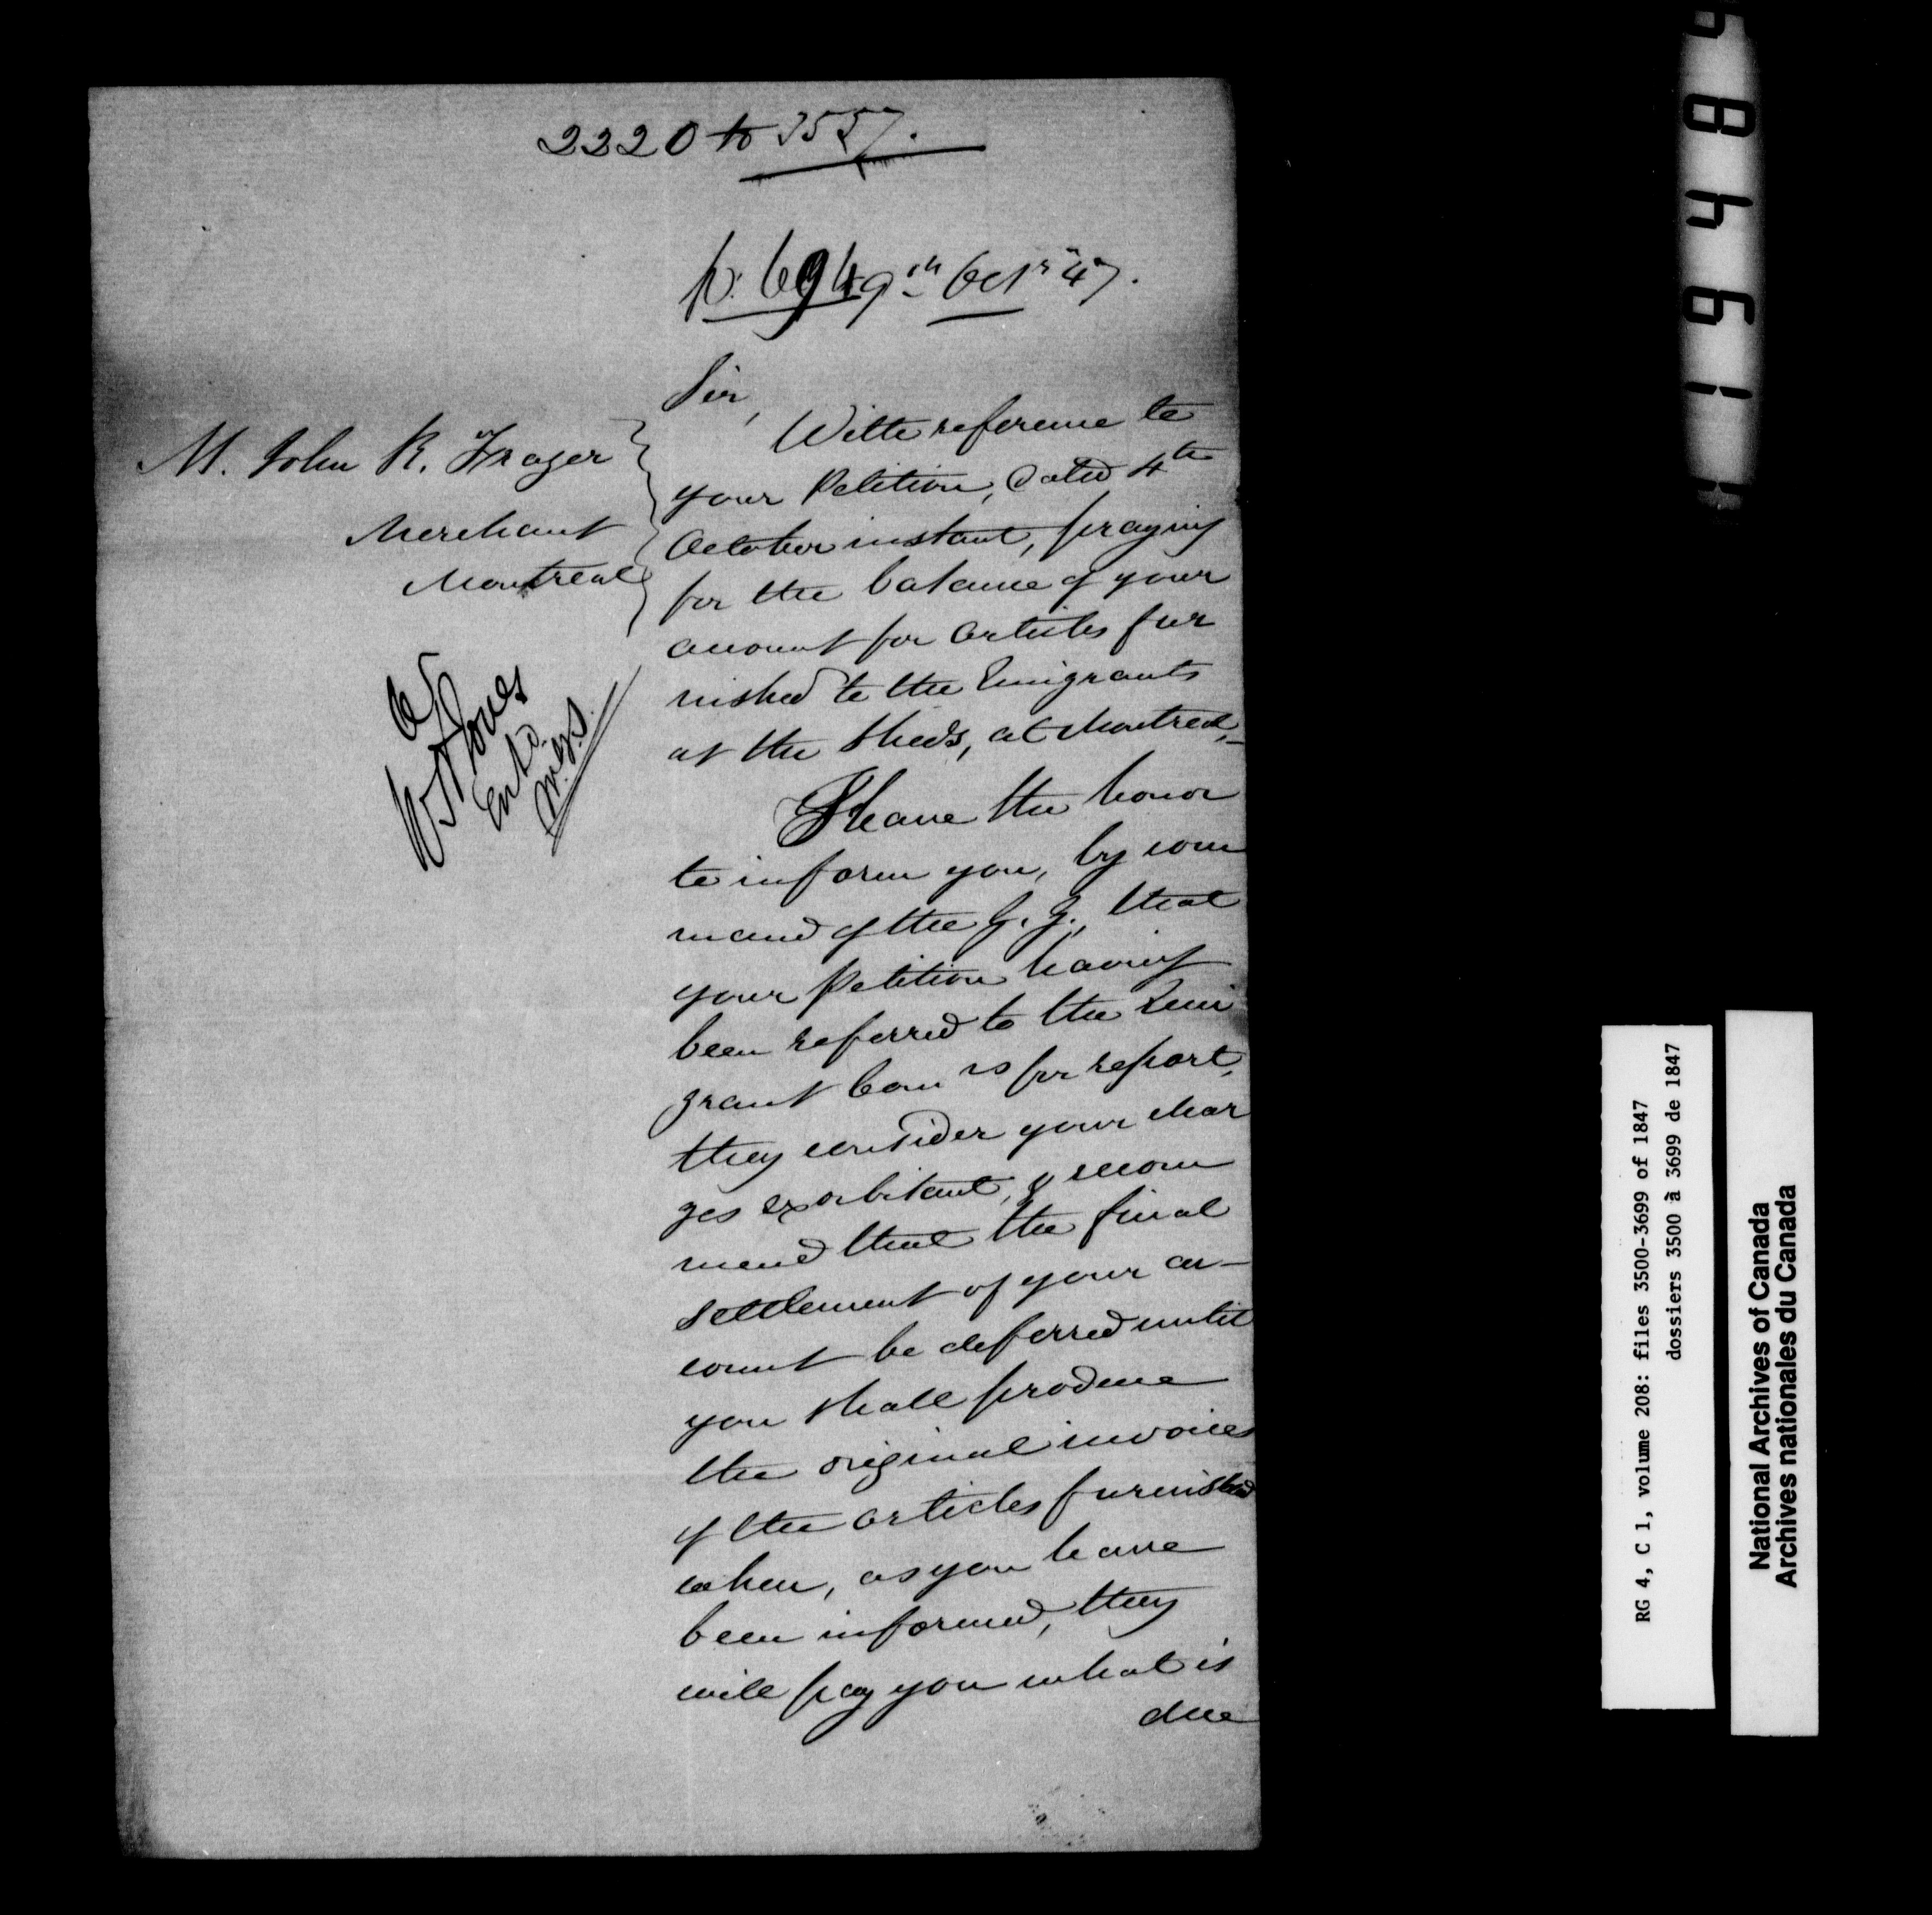 2220 to 3557.
p. 694 9th Octr 47.
Sir,
M. John R. Frazer
Merchant
Montreal
With reference to
your Petition, dated 4th
October instant, praying
for the balance of your
account for articles fur
nished to the Emigrants
at the Sheds, at Montreal,
I have the honor
to inform you, by com
mand of the G. G., that
your Petition having
been referred to the Emi
grant Comrs for report,
they consider your char
ges exorbitant, & recom
mend that the final
settlement of your ac-
count be deferred until
you shall produce
the original invoices
of the articles furnished
when, as you have
been informed, they
will pay you what is
due
RG 4, C 1, volume 208: files 3500-3699 of 1847
dossiers 3500 à 3699 de 1847
National Archives of Canada
Archives nationales du Canada